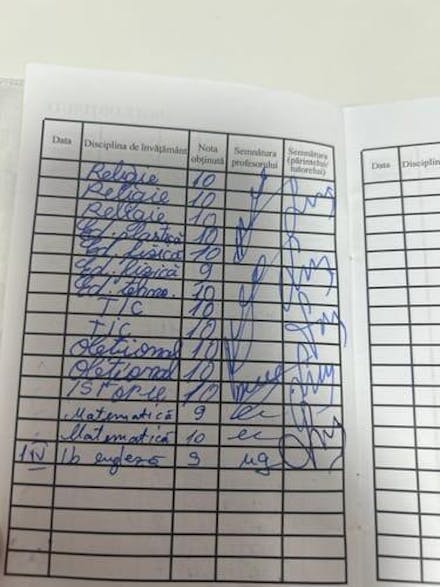 Data Disciplina de învățământ Nota obținută Semnătura profesorului Semnătura (părintelui/tutorelui) Data Disciplin
Religie 10
Religie 10
Religie 10
Ed. plastică 10
Ed. fizică 10
Ed. fizică 9
Ed. tehno. 10
TIC 10
TIC 10
Opțional 10
Opțional 10
Istorie 10
Matematică 9
Matematică 10
1 IV lb engleză 9